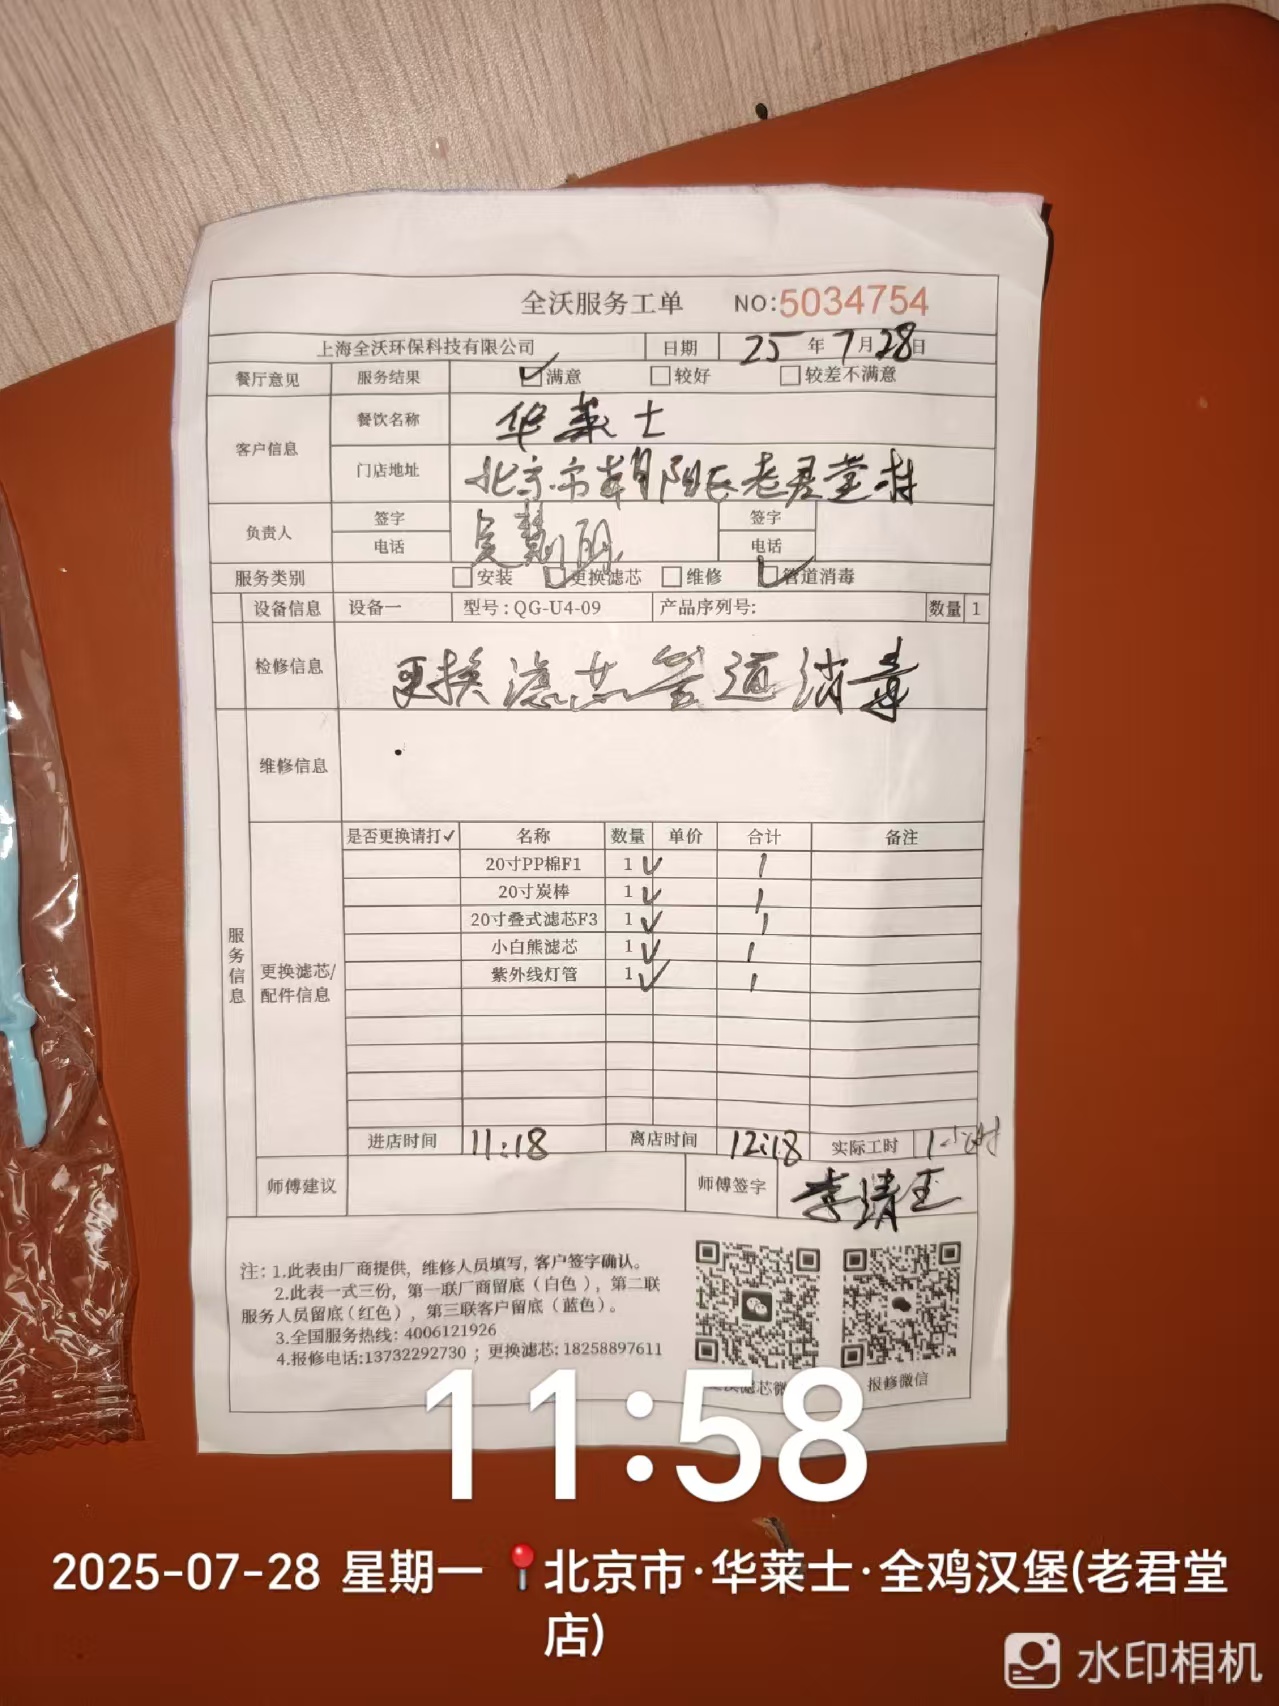 全沃服务工单 NO:5034754
上海全沃环保科技有限公司 日期 25年7月28日
餐厅意见 服务结果 ☑满意 □较好 □较差不满意
客户信息 餐饮名称 华莱士
门店地址 北京市朝阳区老君堂村
负责人 签字 签字
电话 电话
服务类别 □安装 ☑更换滤芯 □维修 ☑管道消毒
设备信息 设备一 型号:QG-U4-09 产品序列号: 数量 1
检修信息 更换滤芯管道消毒
维修信息
服务信息
更换滤芯/配件信息
是否更换请打✓ 名称 数量 单价 合计 备注
20寸PP棉F1 1 ✓ 1
20寸炭棒 1 ✓ 1
20寸叠式滤芯F3 1 ✓ 1
小白熊滤芯 1 ✓ 1
紫外线灯管 1 ✓ 1
进店时间 11:18 离店时间 12:18 实际工时 1小时
师傅建议 师傅签字 李靖玉
注: 1.此表由厂商提供, 维修人员填写, 客户签字确认。
2.此表一式三份, 第一联厂商留底(白色), 第二联
服务人员留底(红色), 第三联客户留底(蓝色)。
3.全国服务热线: 4006121926
4.报修电话:13732292730 ; 更换滤芯: 18258897611
报修微信
11:58
2025-07-28 星期一 北京市·华莱士·全鸡汉堡(老君堂
店)
水印相机